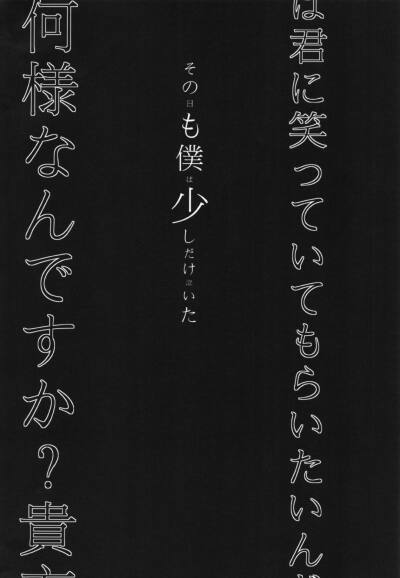 は君に笑っていてもらいたいん
その日も僕は少しだけ泣いた
何様なんですか？貴